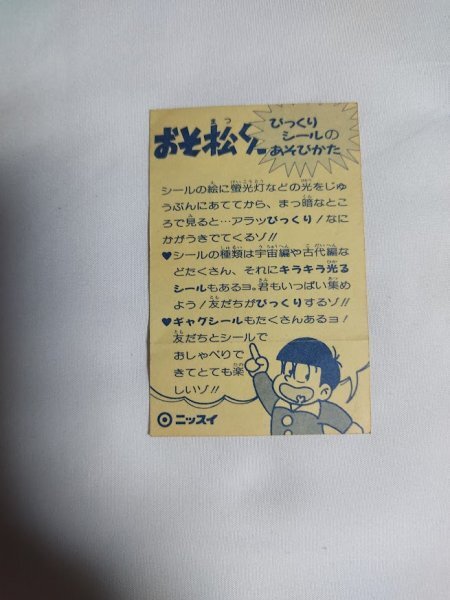 おそ松くん
びっくり
シールの
あそびかた
シールの絵に螢光灯などの光をじゅ
うぶんにあててから、まっ暗なところ
ろで見ると…アラッびっくり!なに
かがうきでてくるゾ!!
♥シールの種類は宇宙編や古代編な
どたくさん、それにキラキラ光る
シールもあるヨ。君もいっぱい集め
よう!友だちがびっくりするゾ!!
♥ギャグシールもたくさんあるヨ!
友だちとシールで
おしゃべりで
きてとても楽
しいゾ!!
ニッスイ